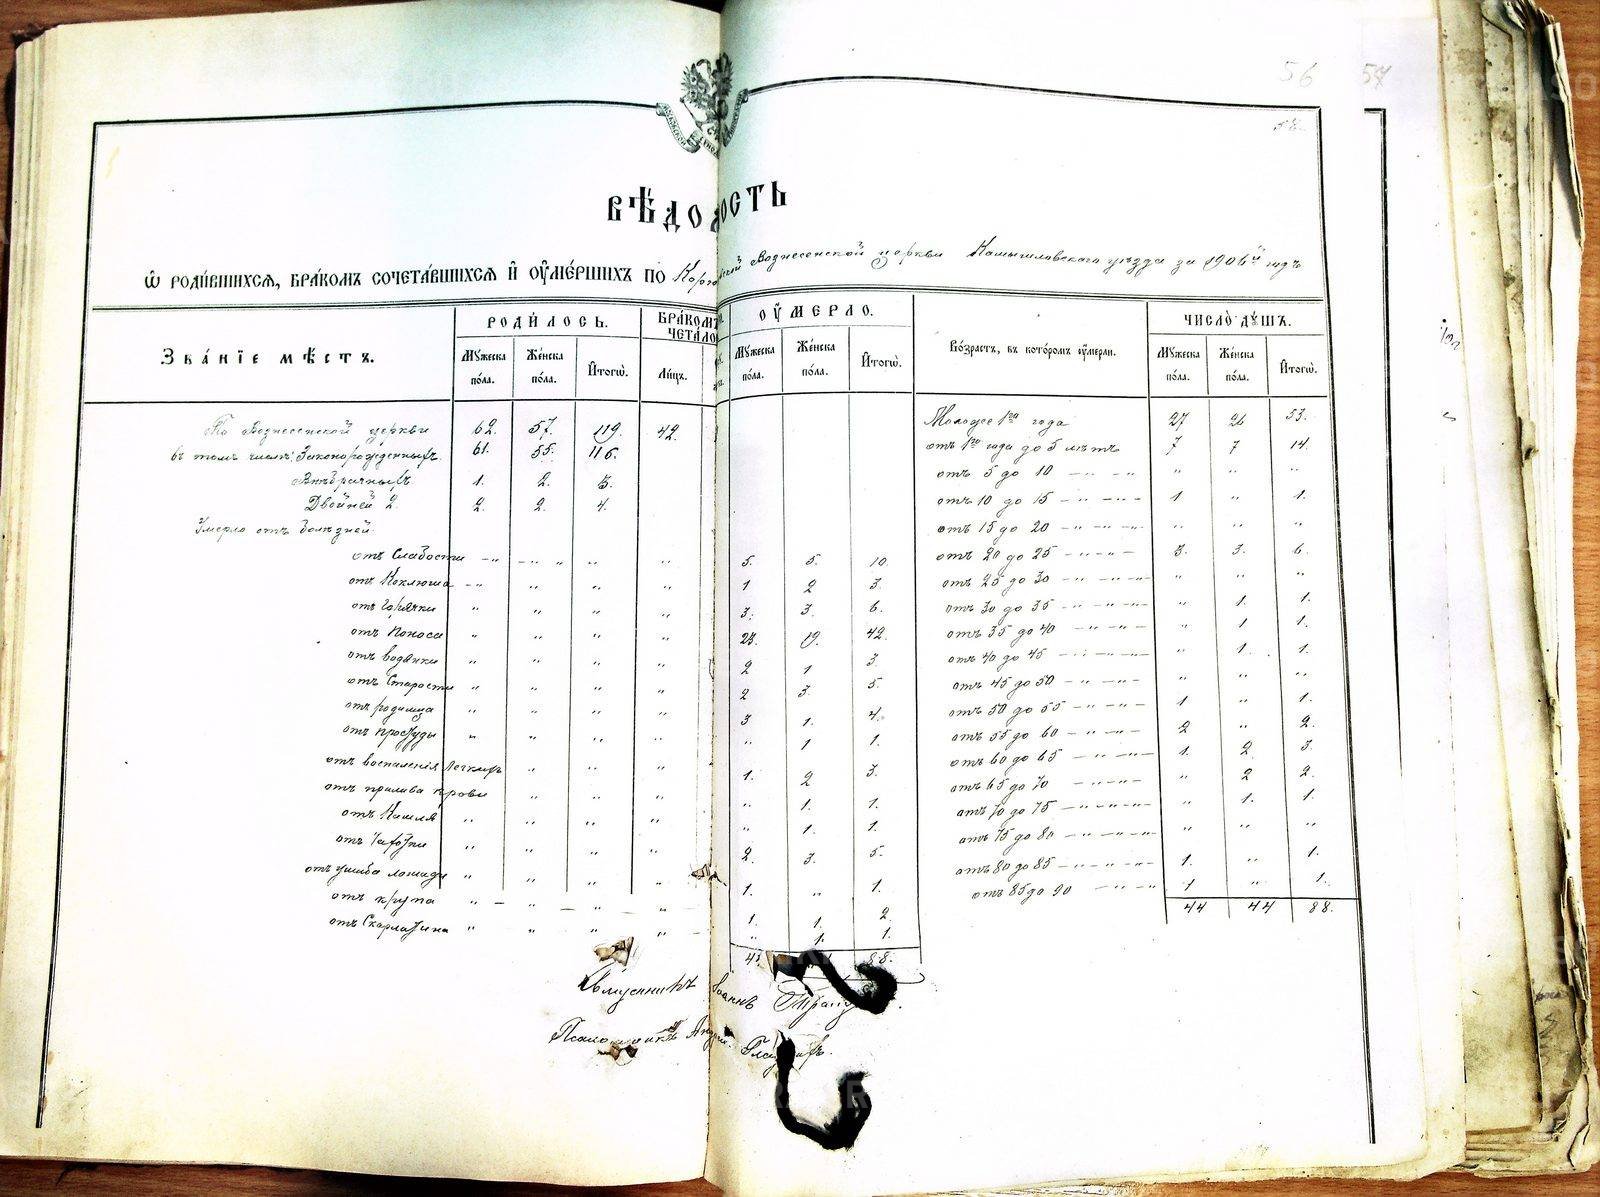 56 57
ВѢДОМОСТЬ
Ѡ РОДИ́ВШИХСѦ, БРА́КОМЪ СОЧЕТА́ВШИХСѦ И҆ ОУ҆МЕ́РШИХЪ ПО Вознесенской церкви Камышловскаго уѣзда за 1906й годъ
ЗВА́НІЕ МѢ́СТЪ. РОДИ́ЛОСЬ. БРА́КОМЪ ОУ҆́МЕРЛО. ЧИСЛО̀ ДꙊ́ШЪ.
ЧЕТА́ЛО
МꙊ́жеска по́ла. Же́нска по́ла. И҆того̀. Ли́цъ. МꙊ́жеска по́ла. Же́нска по́ла. И҆того̀. Во́зрастъ, въ кото́ромъ оу҆́мерли. МꙊ́жеска по́ла. Же́нска по́ла. И҆того̀.
По Вознесенской церкви 62. 57. 119. 42. Моложе 1го года 27 26 53.
въ томъ числѣ: Законорожденныхъ. 61. 55. 116. отъ 1го года до 5 лѣтъ 7 7 14.
Внѣбрачныхъ 1. 2. 3. отъ 5 до 10 — „ — „ „ „ „
Двойней 2. 2. 2. 4. отъ 10 до 15 — „ — „ — 1 „ 1.
Умерло отъ болѣзней отъ 15 до 20 — „ — „ — „ „ „
отъ Слабости — „ — „ „ „ „ 5. 5. 10. отъ 20 до 25 — „ — „ — 3. 3. 6.
отъ Коклюша — „ „ „ „ 1 2 3. отъ 25 до 30 — „ — „ — „ „ „
отъ горячки „ „ „ „ 3. 3. 6. отъ 30 до 35 — „ — „ — „ 1. 1.
отъ Поноса „ „ „ „ 23. 19. 42. отъ 35 до 40 — „ — „ — „ 1 1.
отъ водянки „ „ „ „ 2 1 3. отъ 40 до 45 — „ — „ — „ 1. 1.
отъ Старости „ „ „ „ 2 3. 5. отъ 45 до 50 — „ — „ — „ „ „
отъ родимца „ „ „ „ 3 1. 4. отъ 50 до 55 — „ — „ — 1 „ 1.
отъ простуды „ „ „ „ „ 1 1. отъ 55 до 60 — „ — „ — 2 „ 2.
отъ воспаленія Легкихъ „ „ „ 1. 2 3. отъ 60 до 65 — „ — „ — 1. 2 3.
отъ прилива крови „ „ „ „ 1. 1. отъ 65 до 70 — „ — „ — „ 2 2.
отъ Кашля „ „ „ „ „ 1. 1. отъ 70 до 75 — „ — „ — „ 1. 1.
отъ Чахотки „ „ „ „ 2. 3. 5. отъ 75 до 80 — „ — „ — „ „ „
отъ ушиба лошади „ „ „ „ 1. „ 1. отъ 80 до 85 — „ — „ — 1. „ 1.
отъ крупа „ — „ — „ — „ 1. 1. 2. отъ 85 до 90 — „ — „ 1 „ 1.
отъ Скарлатина „ „ „ „ „ 1. 1. 44 44 88.
88.
Священникъ Іоаннъ
Псаломщикъ